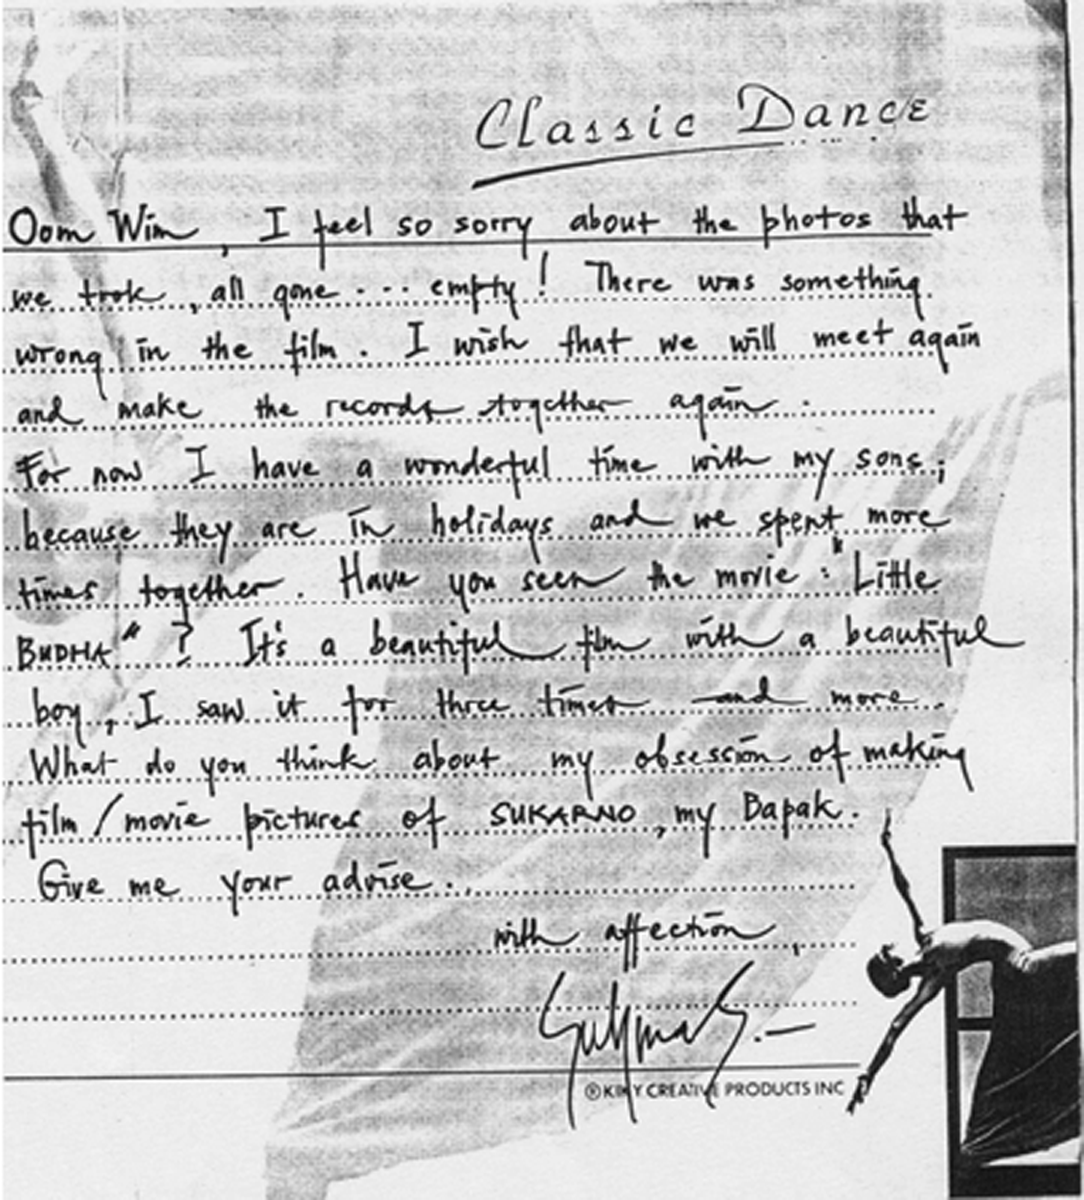 Classic Dance
Oom Wim, I feel so sorry about the photos that
we took, all gone ... empty! There was something
wrong in the film. I wish that we will meet again
and make the records together again.
For now I have a wonderful time with my sons,
because they are in holidays and we spent more
times together. Have you seen the movie: "Little
BUDHA"? It's a beautiful film with a beautiful
boy, I saw it for three times and more.
What do you think about my obsession of making
film/movie pictures of SUKARNO, my Bapak.
Give me your advise..
with affection,
®KIKY CREATIVE PRODUCTS INC